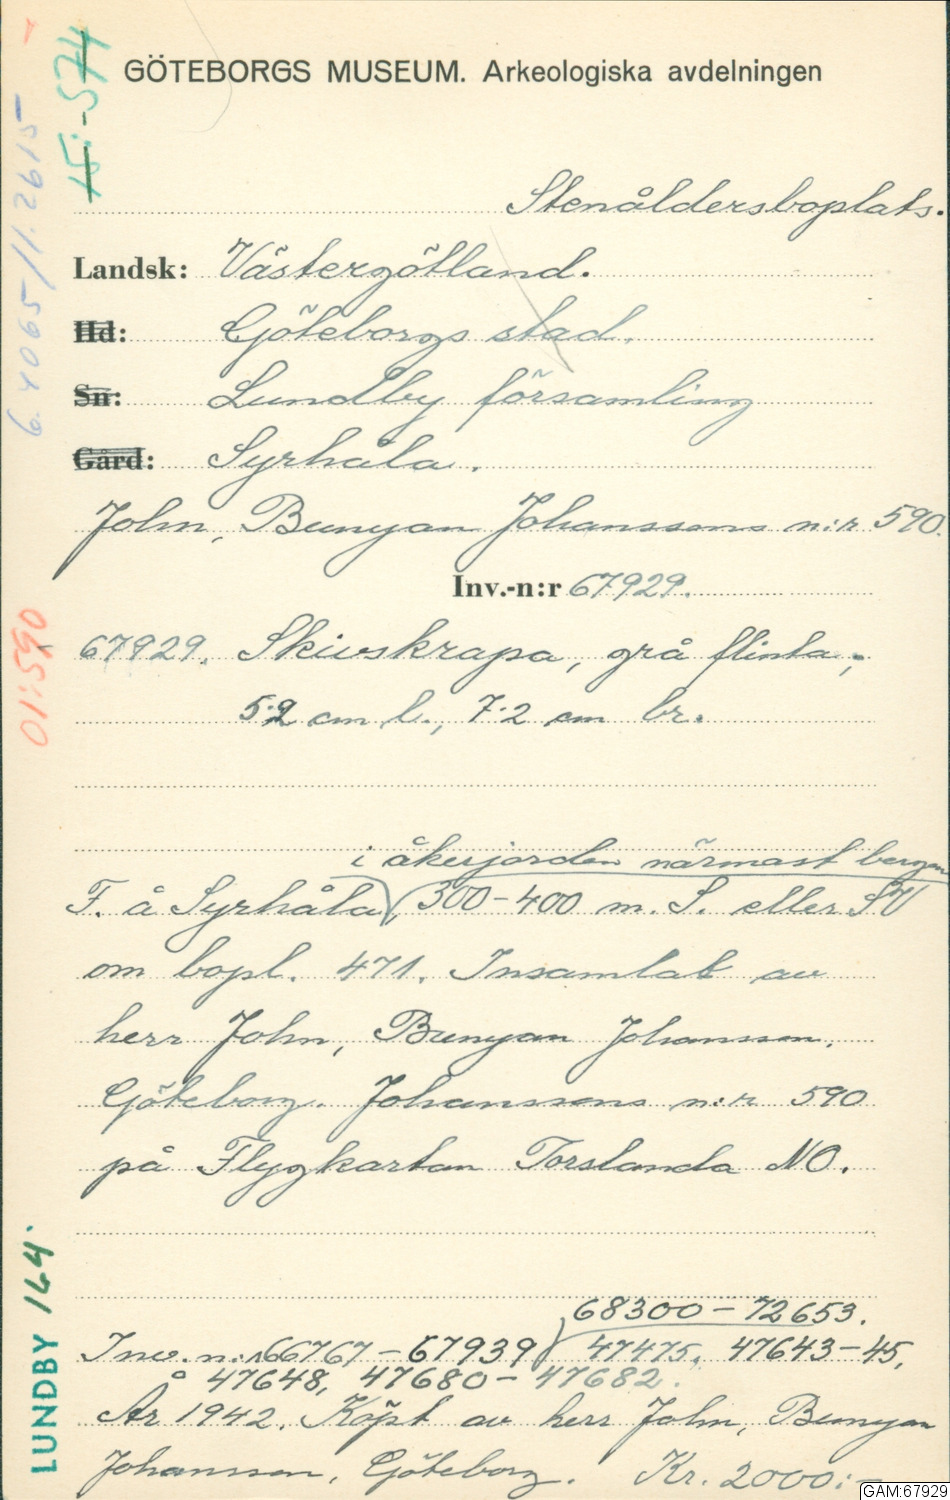 GÖTEBORGS MUSEUM. Arkeologiska avdelningen
15:-574
6.4065/11.2615
Stenåldersboplats.
Landsk: Västergötland.
Hd: Göteborgs stad.
Sn: Lundby församling
Gård: Syrhåla.
John, Bunyan Johanssons n:r 590.
Inv.-n:r 67929.
01:590
67929. Skivskrapa, grå flinta;
5.2 cm l., 7.2 cm br.
i åkerjorden närmast bergen
F. å Syrhåla, 300-400 m. S. eller SV
om bopl. 471. Insamlat av
herr John, Bunyan Johansson,
Göteborg. Johanssons n:r 590
på Flygkartan Torslanda NO.
LUNDBY 164.
68300-72653.
Inv. n:r 66767-67939, 47475, 47643-45,
47648, 47680-47682.
År 1942. Köpt av herr John, Bunyan
Johansson, Göteborg. Kr. 2000:-
GAM:67929